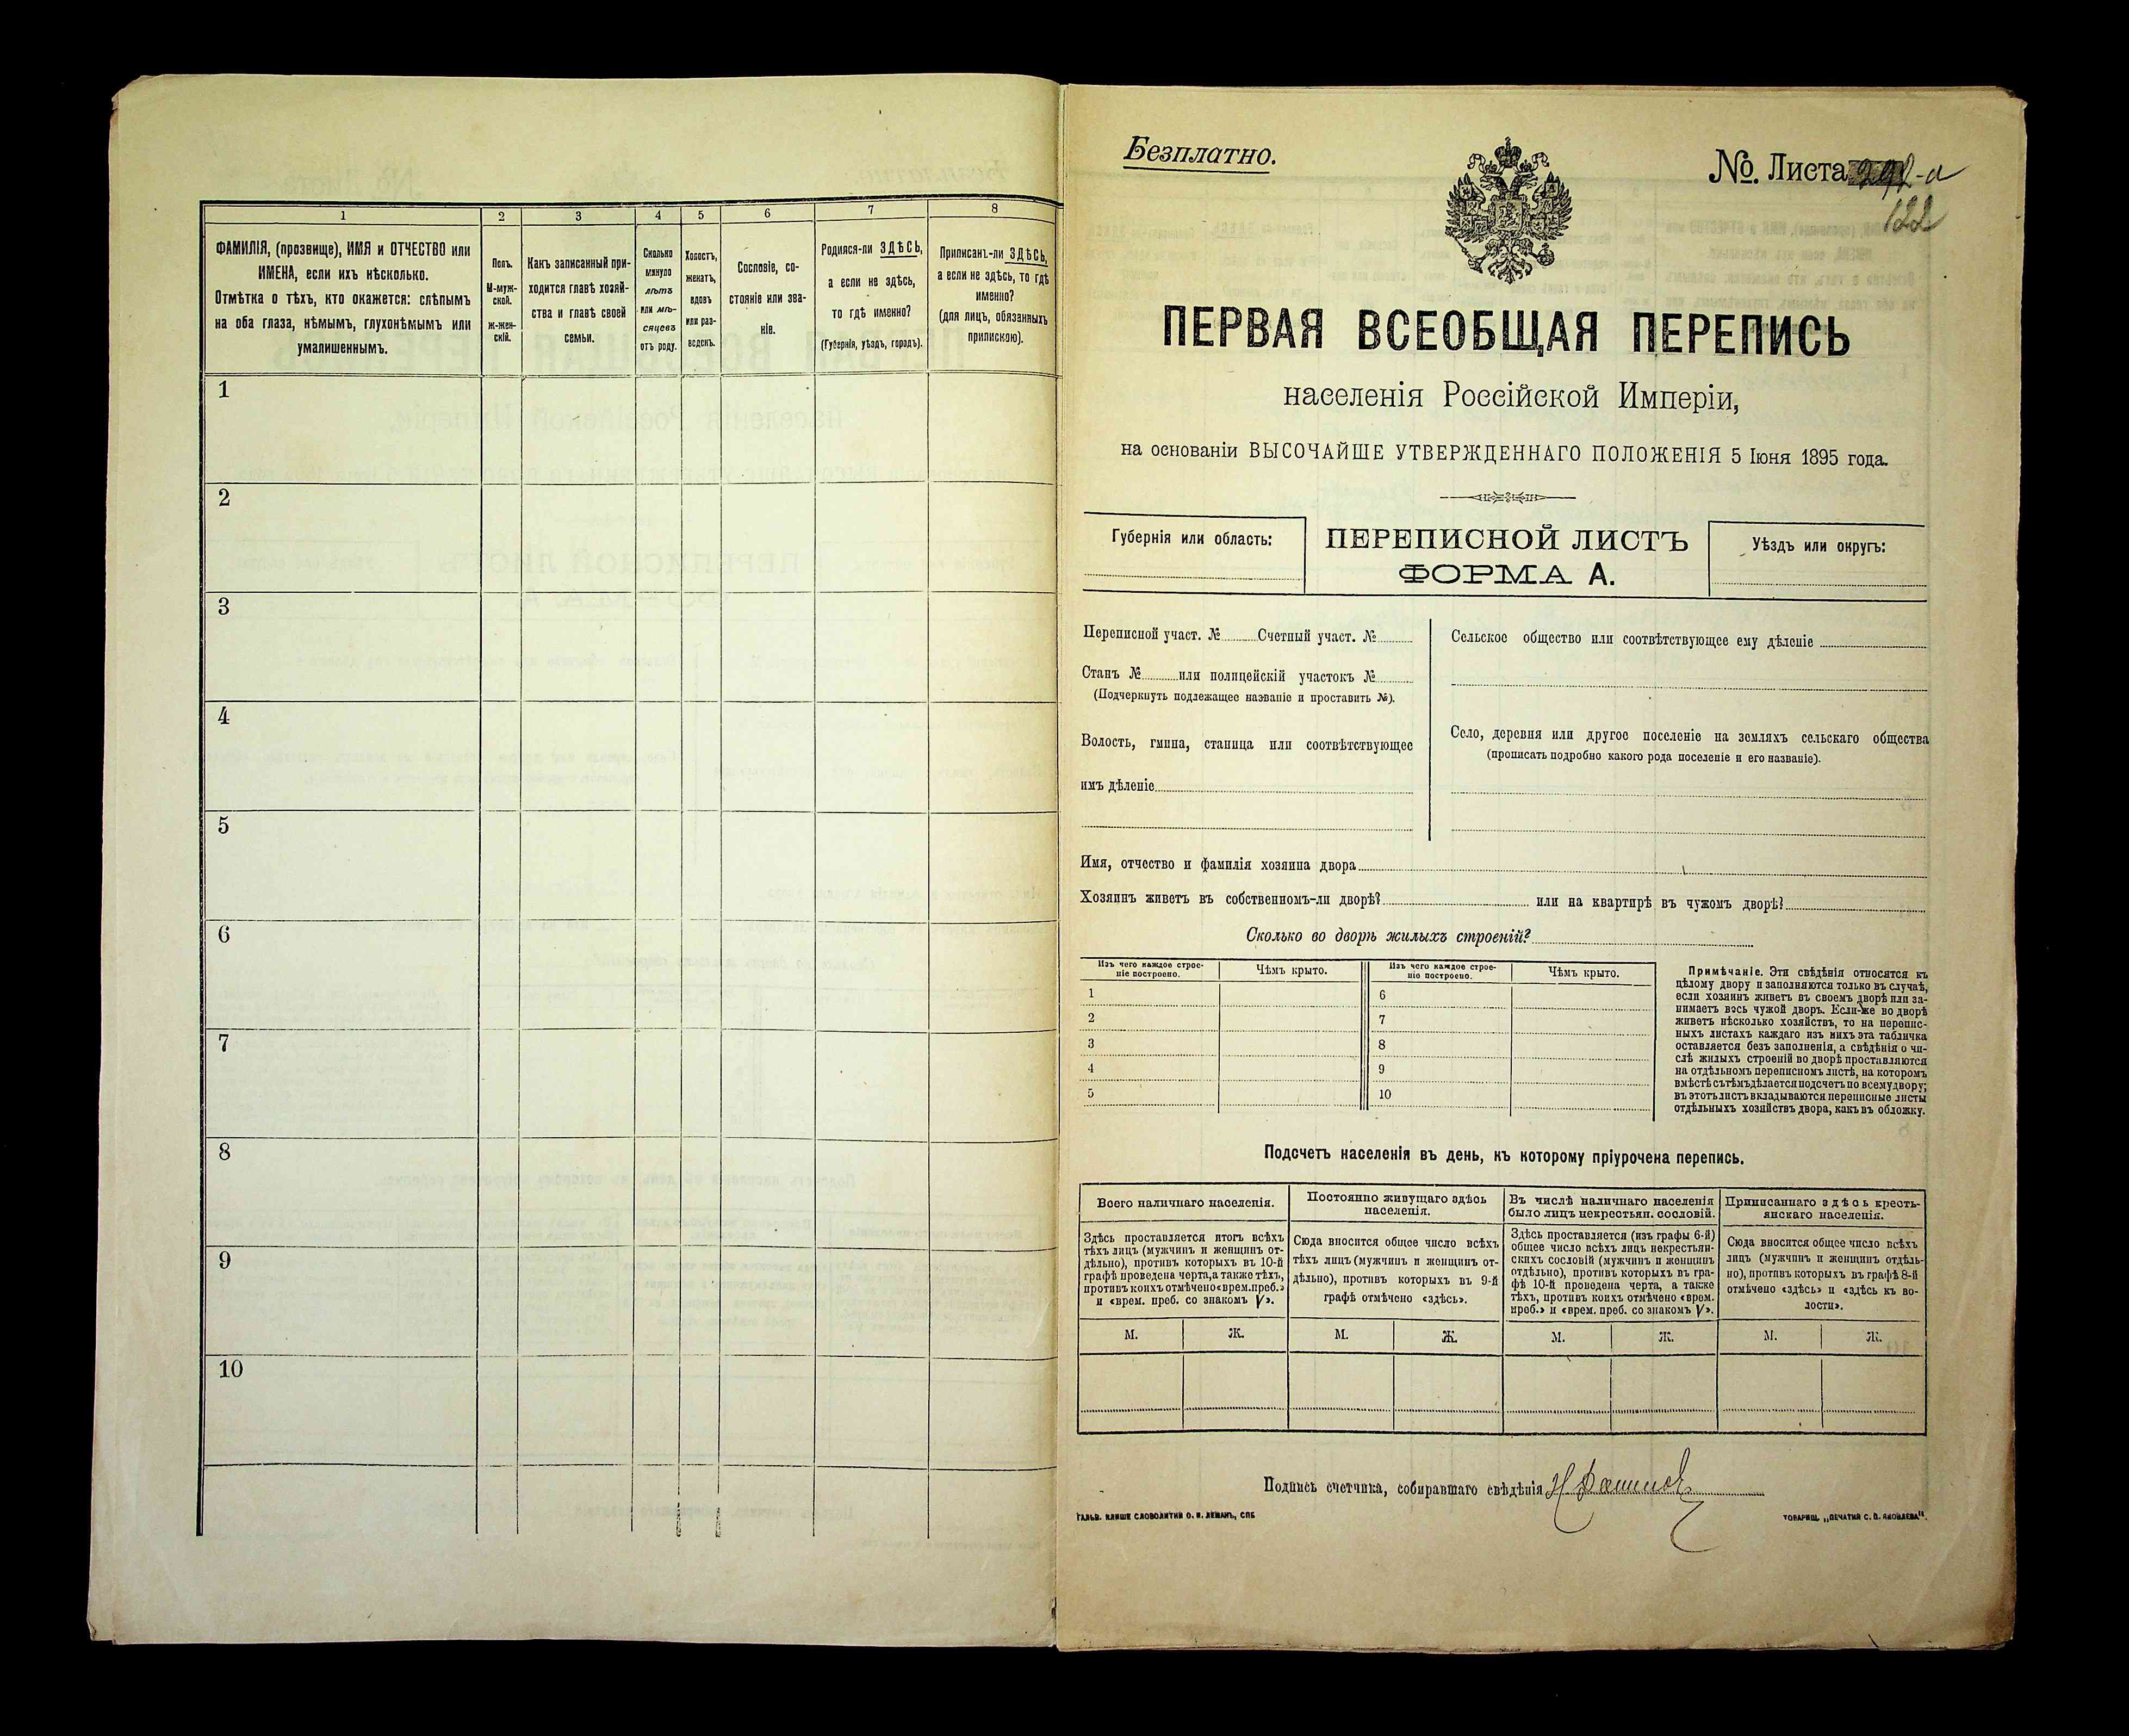 1
2
3
4
5
6
7
8
ФАМИЛІЯ, (прозвище), ИМЯ и ОТЧЕСТВО или
ИМЕНА, если ихъ нѣсколько.
Отмѣтка о тѣхъ, кто окажется: слѣпымъ
на оба глаза, нѣмымъ, глухонѣмымъ или
умалишеннымъ.
Полъ.
М-муж-
ской.
ж-жен-
скій.
Какъ записанный при-
ходится главѣ хозяй-
ства и главѣ своей
семьи.
Сколько
минуло
лѣтъ
или мѣ-
сяцевъ
отъ роду.
Холостъ,
женатъ,
вдовъ
или раз-
веденъ.
Сословіе, со-
стояніе или зва-
ніе.
Родился-ли ЗДѢСЬ,
а если не здѣсь,
то гдѣ именно?
(Губернія, уѣздъ, городъ).
Приписанъ-ли ЗДѢСЬ,
а если не здѣсь, то гдѣ
именно?
(для лицъ, обязанныхъ
припискою).
1
2
3
4
5
6
7
8
9
10
Безплатно.
№. Листа
122
ПЕРВАЯ ВСЕОБЩАЯ ПЕРЕПИСЬ
населенія Россійской Имперіи,
на основаніи ВЫСОЧАЙШЕ УТВЕРЖДЕННАГО ПОЛОЖЕНІЯ 5 Іюня 1895 года.
Губернія или область:
ПЕРЕПИСНОЙ ЛИСТЪ
ФОРМА А.
Уѣздъ или округъ:
Переписной участ. № Счетный участ. №
Станъ № или полицейскій участокъ №
(Подчеркнуть подлежащее названіе и проставить №).
Волость, гмина, станица или соотвѣтствующее
имъ дѣленіе
Сельское общество или соотвѣтствующее ему дѣленіе
Село, деревня или другое поселеніе на земляхъ сельскаго общества
(прописать подробно какого рода поселеніе и его названіе).
Имя, отчество и фамилія хозяина двора
Хозяинъ живетъ въ собственномъ-ли дворѣ? или на квартирѣ въ чужомъ дворѣ?
Сколько во дворѣ жилыхъ строеній?
Изъ чего каждое строе-
ніе построено.
Чѣмъ крыто.
Изъ чего каждое строе-
ніе построено.
Чѣмъ крыто.
1
2
3
4
5
6
7
8
9
10
Примѣчаніе. Эти свѣдѣнія относятся къ
цѣлому двору и заполняются только въ случаѣ,
если хозяинъ живетъ въ своемъ дворѣ или за-
нимаетъ весь чужой дворъ. Если-же во дворѣ
живетъ нѣсколько хозяйствъ, то на перепис-
ныхъ листахъ каждаго изъ нихъ эта табличка
оставляется безъ заполненія, а свѣдѣнія о чи-
слѣ жилыхъ строеній во дворѣ проставляются
на отдѣльномъ переписномъ листѣ, на которомъ
вмѣстѣ съ тѣмъ дѣлается подсчетъ по всему двору;
въ этотъ листъ вкладываются переписные листы
отдѣльныхъ хозяйствъ двора, какъ въ обложку.
Подсчетъ населенія въ день, къ которому пріурочена перепись.
Всего наличнаго населенія.
Здѣсь проставляется итогъ всѣхъ
тѣхъ лицъ (мужчинъ и женщинъ от-
дѣльно), противъ которыхъ въ 10-й
графѣ проведена черта, а также тѣхъ,
противъ коихъ отмѣчено «врем. преб.»
и «врем. преб. со знакомъ V».
Постоянно живущаго здѣсь
населенія.
Сюда вносится общее число всѣхъ
тѣхъ лицъ (мужчинъ и женщинъ от-
дѣльно), противъ которыхъ въ 9-й
графѣ отмѣчено «здѣсь».
Въ числѣ наличнаго населенія
было лицъ некрестьян. сословій.
Здѣсь проставляется (изъ графы 6-й)
общее число всѣхъ лицъ некрестьян-
скихъ сословій (мужчинъ и женщинъ
отдѣльно), противъ которыхъ въ гра-
фѣ 10-й проведена черта, а также
тѣхъ, противъ коихъ отмѣчено «врем.
преб.» и «врем. преб. со знакомъ V».
Приписаннаго здѣсь кресть-
янскаго населенія.
Сюда вносится общее число всѣхъ
лицъ (мужчинъ и женщинъ отдѣль-
но), противъ которыхъ въ графѣ 8-й
отмѣчено «здѣсь» и «здѣсь къ во-
лости».
М. Ж. М. Ж. М. Ж. М. Ж.
Подпись счетчика, собиравшаго свѣдѣнія
ГАЛЬВ. КЛИШЕ СЛОВОЛИТНИ О. И. ЛЕМАНЪ, СПБ
ТОВАРИЩ. „ПЕЧАТНЯ С. П. ЯКОВЛЕВА".